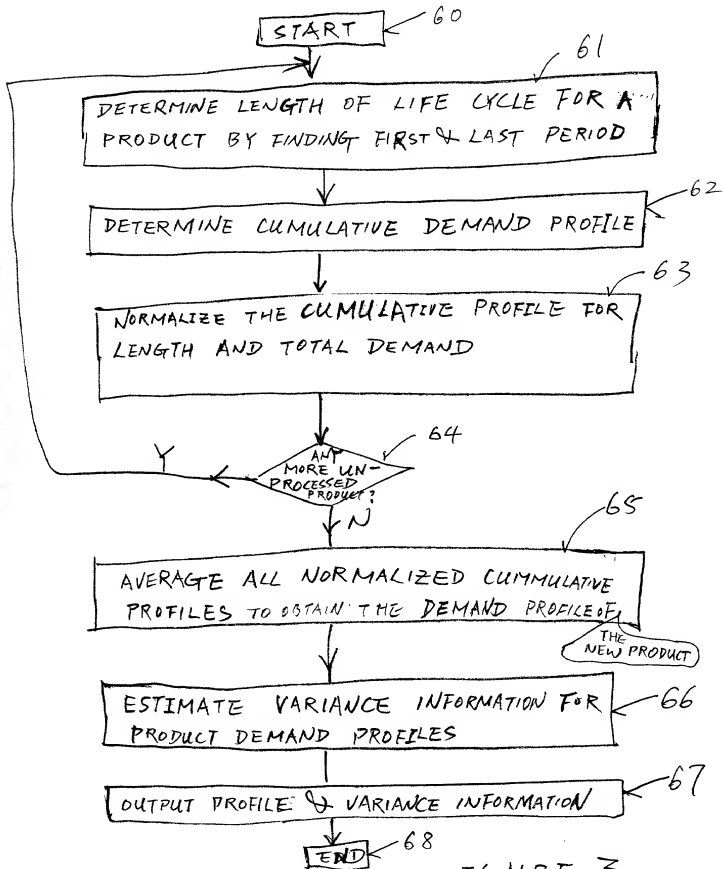 START
60
61
DETERMINE LENGTH OF LIFE CYCLE FOR A
PRODUCT BY FINDING FIRST & LAST PERIOD
62
DETERMINE CUMULATIVE DEMAND PROFILE
63
NORMALIZE THE CUMULATIVE PROFILE FOR
LENGTH AND TOTAL DEMAND
64
Y
ANY
MORE UN-
PROCESSED
PRODUCT?
N
65
AVERAGE ALL NORMALIZED CUMMULATIVE
PROFILES TO OBTAIN THE DEMAND PROFILE OF
THE
NEW PRODUCT
66
ESTIMATE VARIANCE INFORMATION FOR
PRODUCT DEMAND PROFILES
67
OUTPUT PROFILE & VARIANCE INFORMATION
68
END
3